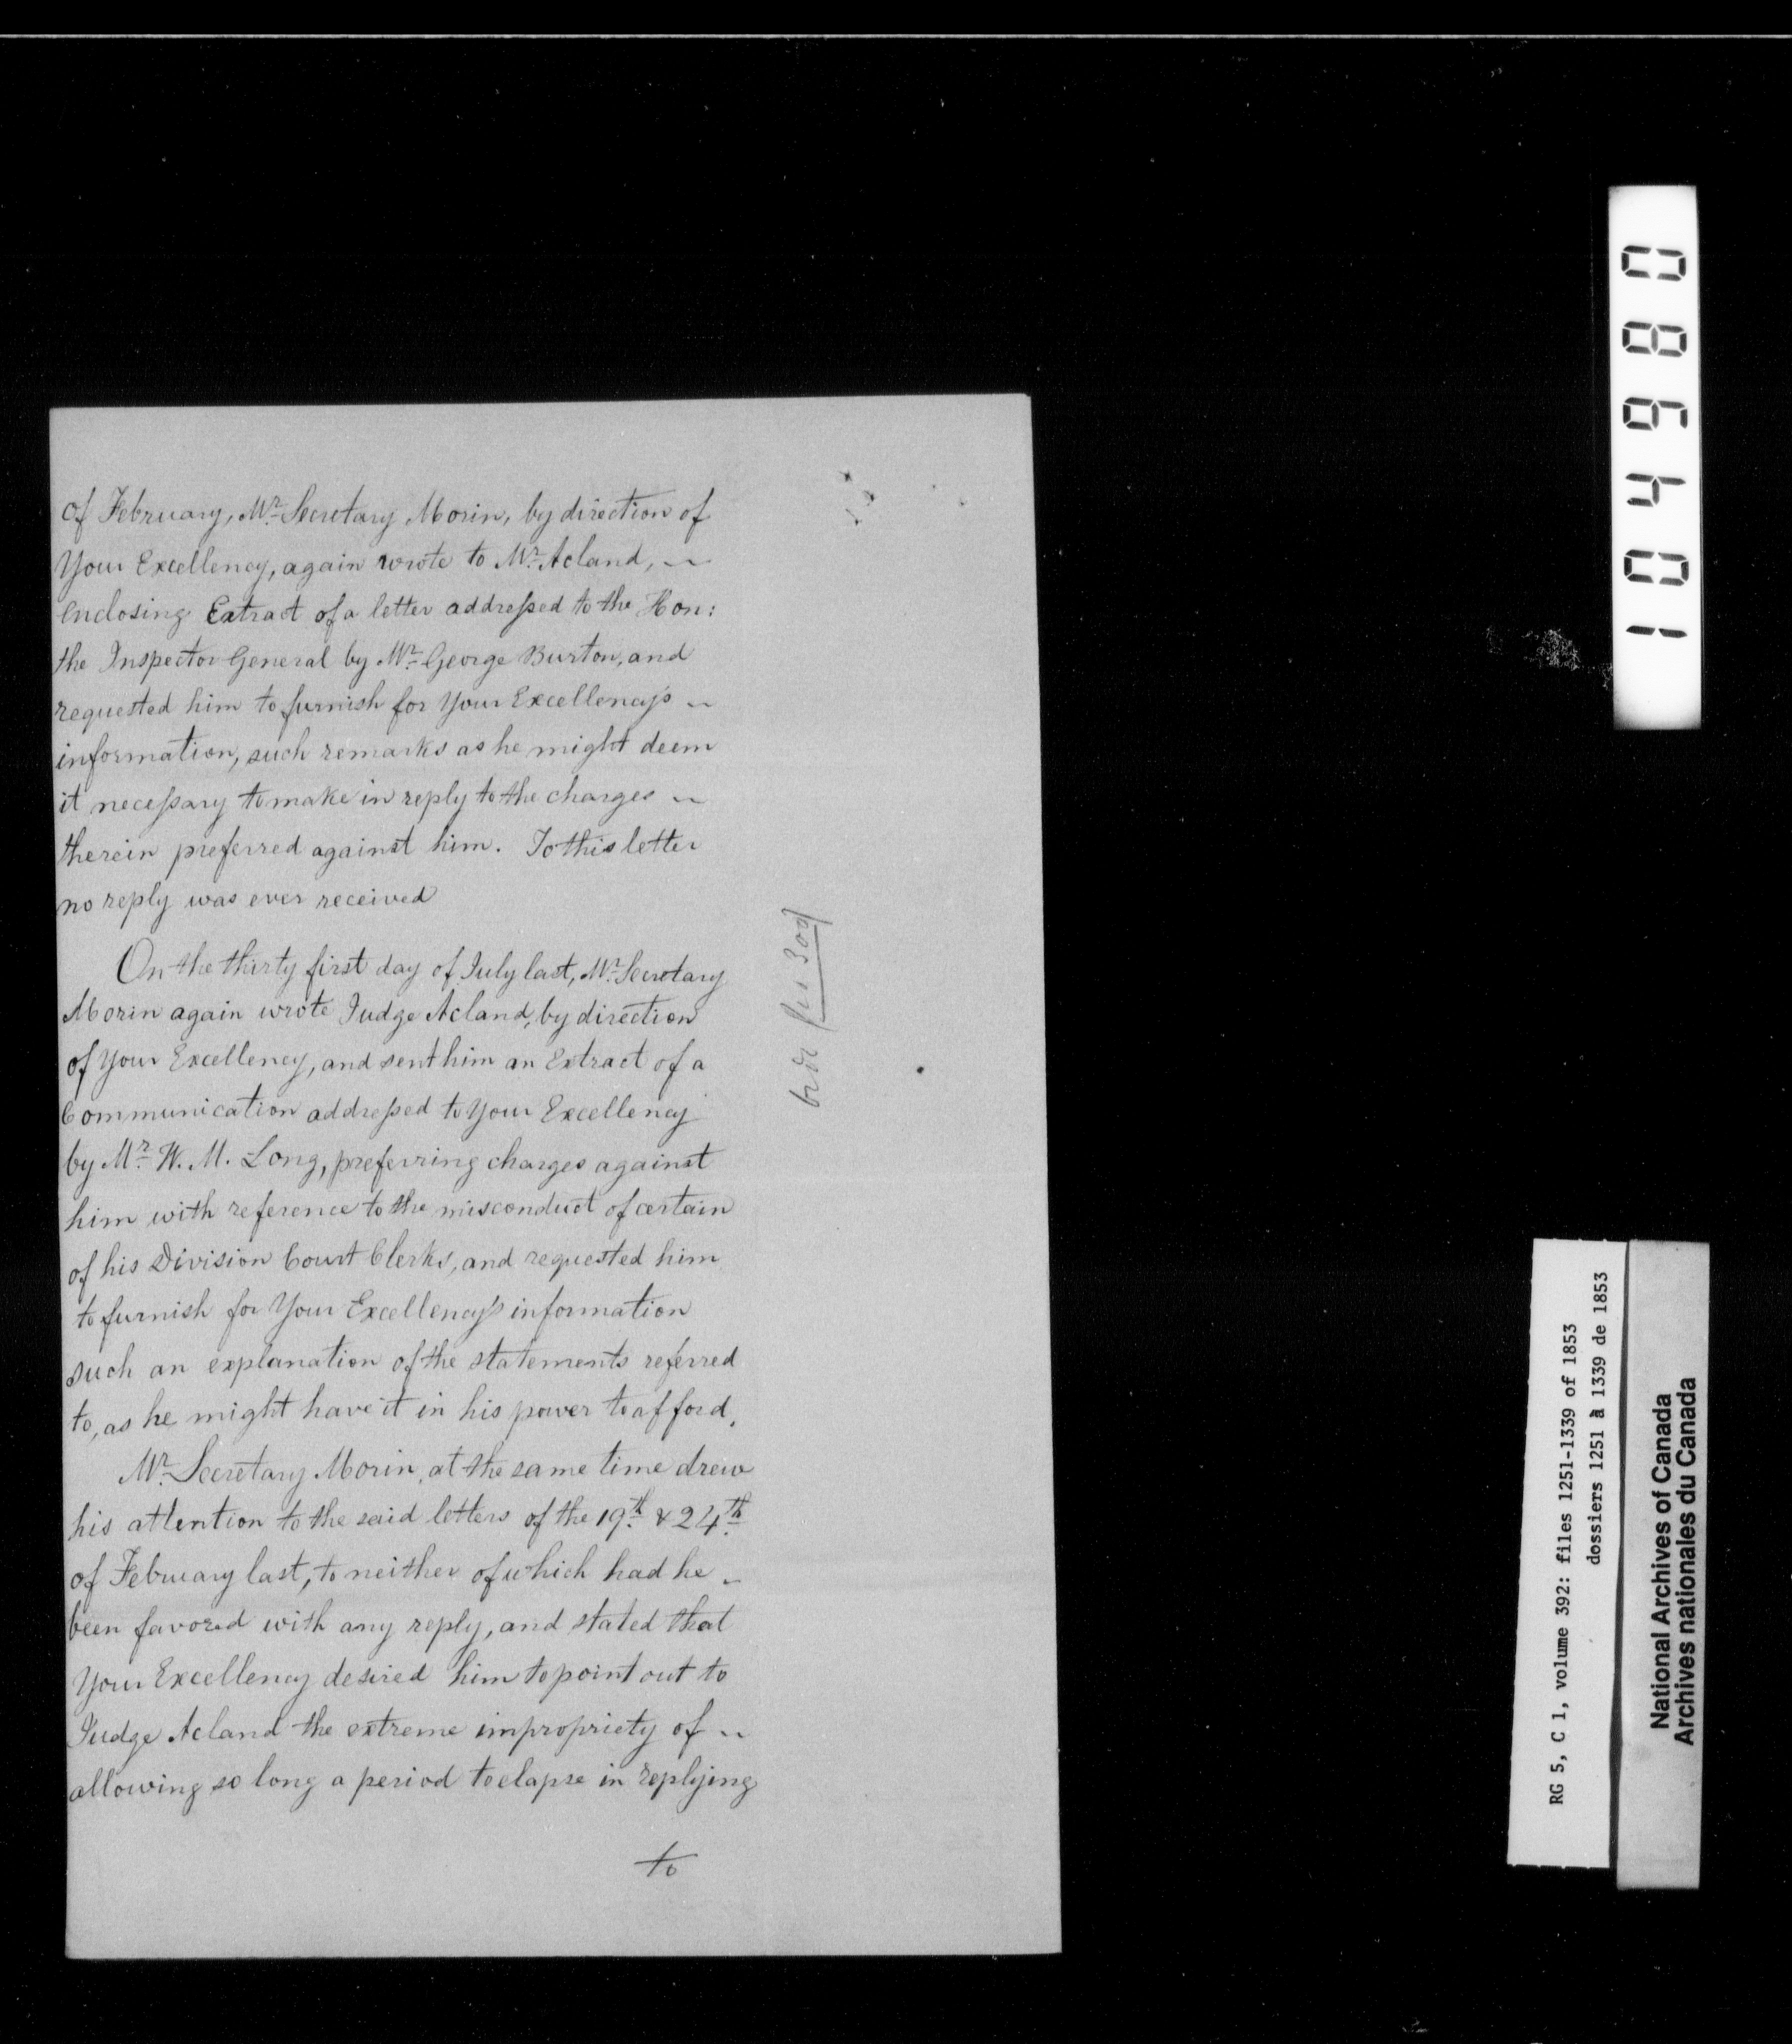 of February, Mr. Secretary Morin, by direction of
Your Excellency, again wrote to Mr. Acland, ~
enclosing Extract of a letter addressed to the Hon:
the Inspector General by Mr. George Burton, and
requested him to furnish for Your Excellency's ~
information, such remarks as he might deem
it necessary to make in reply to the charges ~
therein preferred against him. To this letter
no reply was ever received
On the thirty first day of July last, Mr. Secretary
Morin again wrote Judge Acland, by direction
of Your Excellency, and sent him an Extract of a
Communication addressed to Your Excellency
by Mr. W. M. Long, preferring charges against
him with reference to the misconduct of certain
of his Division Court Clerks, and requested him
to furnish for Your Excellency's information
such an explanation of the statements referred
to, as he might have it in his power to afford.
Mr. Secretary Morin, at the same time drew
his attention to the said letters of the 19th. & 24th.
of February last, to neither of which had he ~
been favored with any reply, and stated that
Your Excellency desired him to point out to
Judge Acland the extreme impropriety of ~
allowing so long a period to elapse in replying
to
104680
RG 5, C 1, volume 392: files 1251-1339 of 1853
dossiers 1251 à 1339 de 1853
National Archives of Canada
Archives nationales du Canada